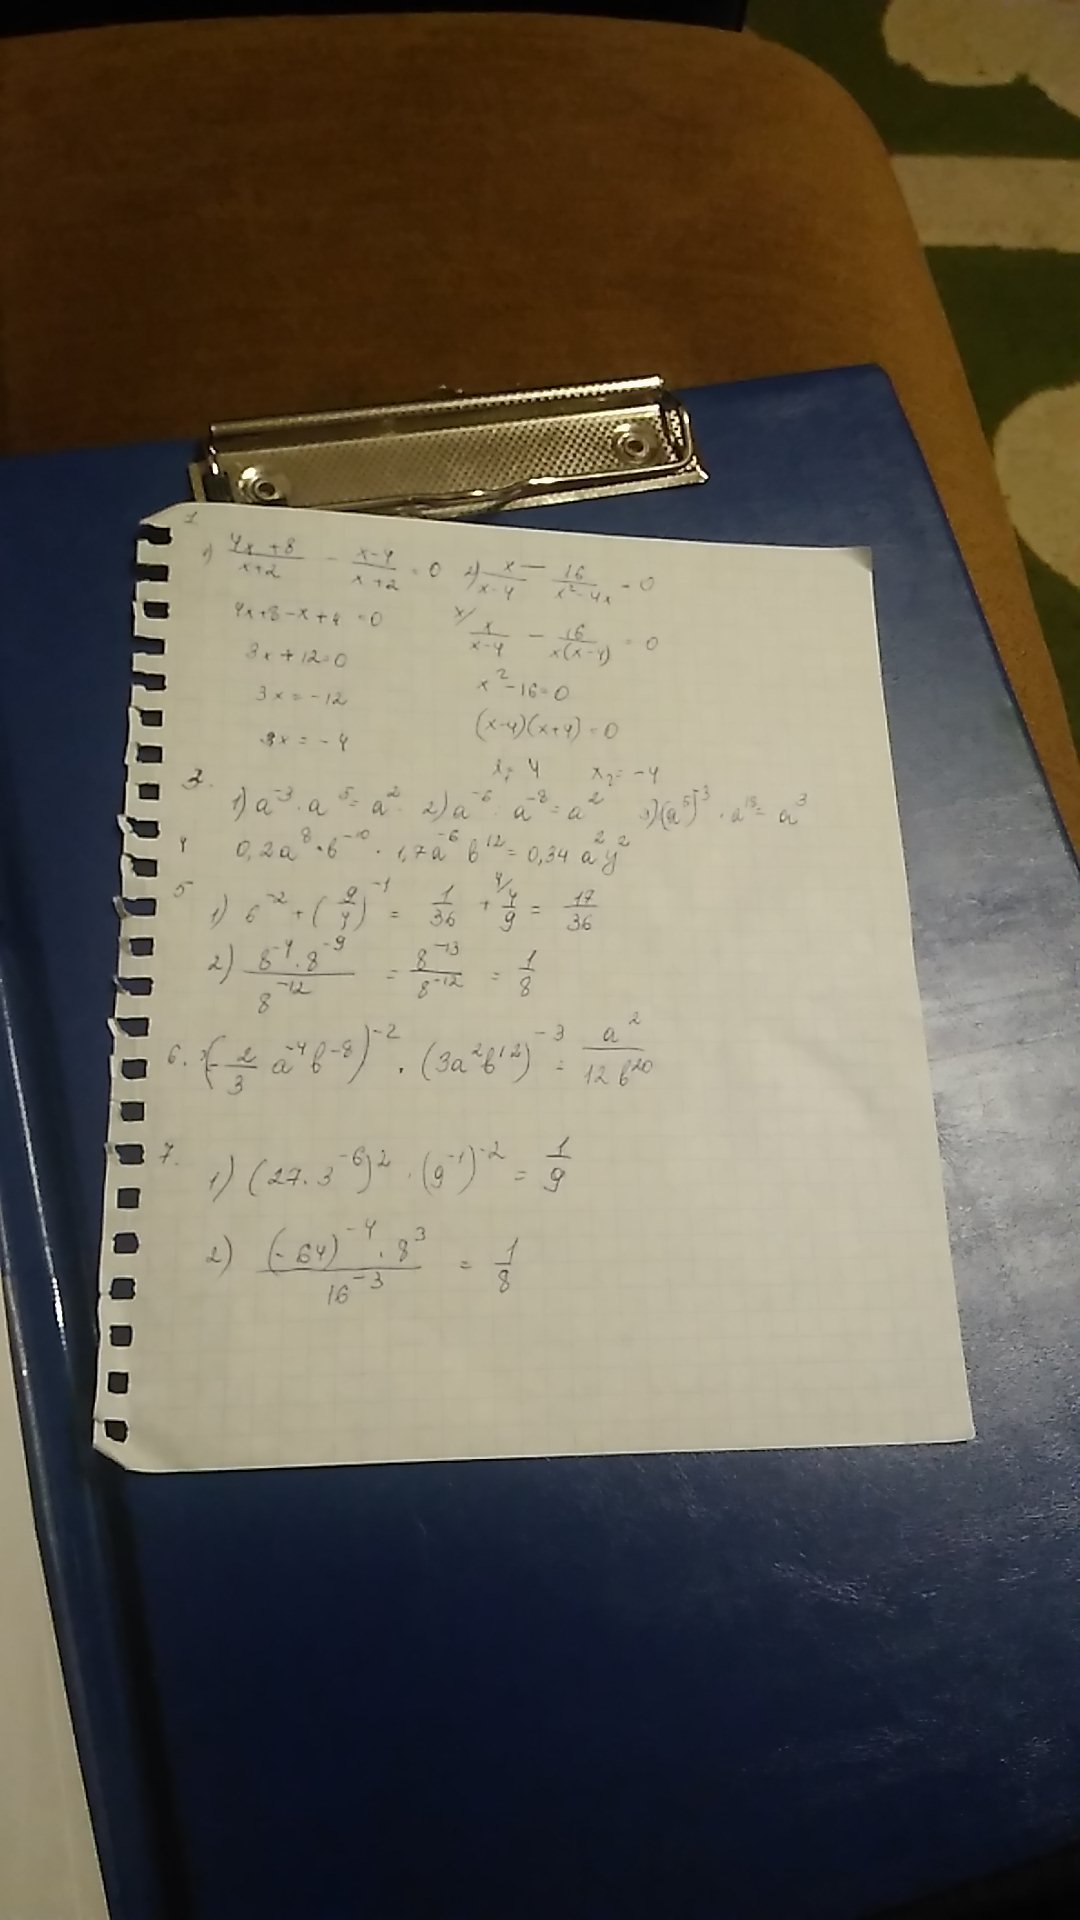 1
1) (4x+8)/(x+2) - (x-4)/(x+2) = 0 2) x/(x-4) - 16/(x²-4x) = 0
4x+8-x+4=0
x/ x/(x-4) - 16/(x(x-4)) = 0
3x+12=0
x²-16=0
3x=-12
(x-4)(x+4)=0
x=-4
x₁=4 x₂=-4
3.
1) a⁻³·a⁵=a² 2) a⁻⁶:a⁻⁸=a² 3) (a⁵)⁻³·a¹⁸=a³
4 0,2a⁸·b⁻¹⁰·1,7a⁻⁶b¹²=0,34a²y²
5
1) 6⁻²+(9/4)⁻¹ = 1/36 + 4/ 4/9 = 17/36
2) (8⁻⁴·8⁻⁹)/8⁻¹² = 8⁻¹³/8⁻¹² = 1/8
6. (-2/3 a⁻⁴b⁻⁸)⁻²·(3a²b¹²)⁻³ = a²/(12b²⁰)
7.
1) (27·3⁻⁶)²·(9⁻¹)⁻² = 1/9
2) ((-64)⁻⁴·8³)/16⁻³ = 1/8